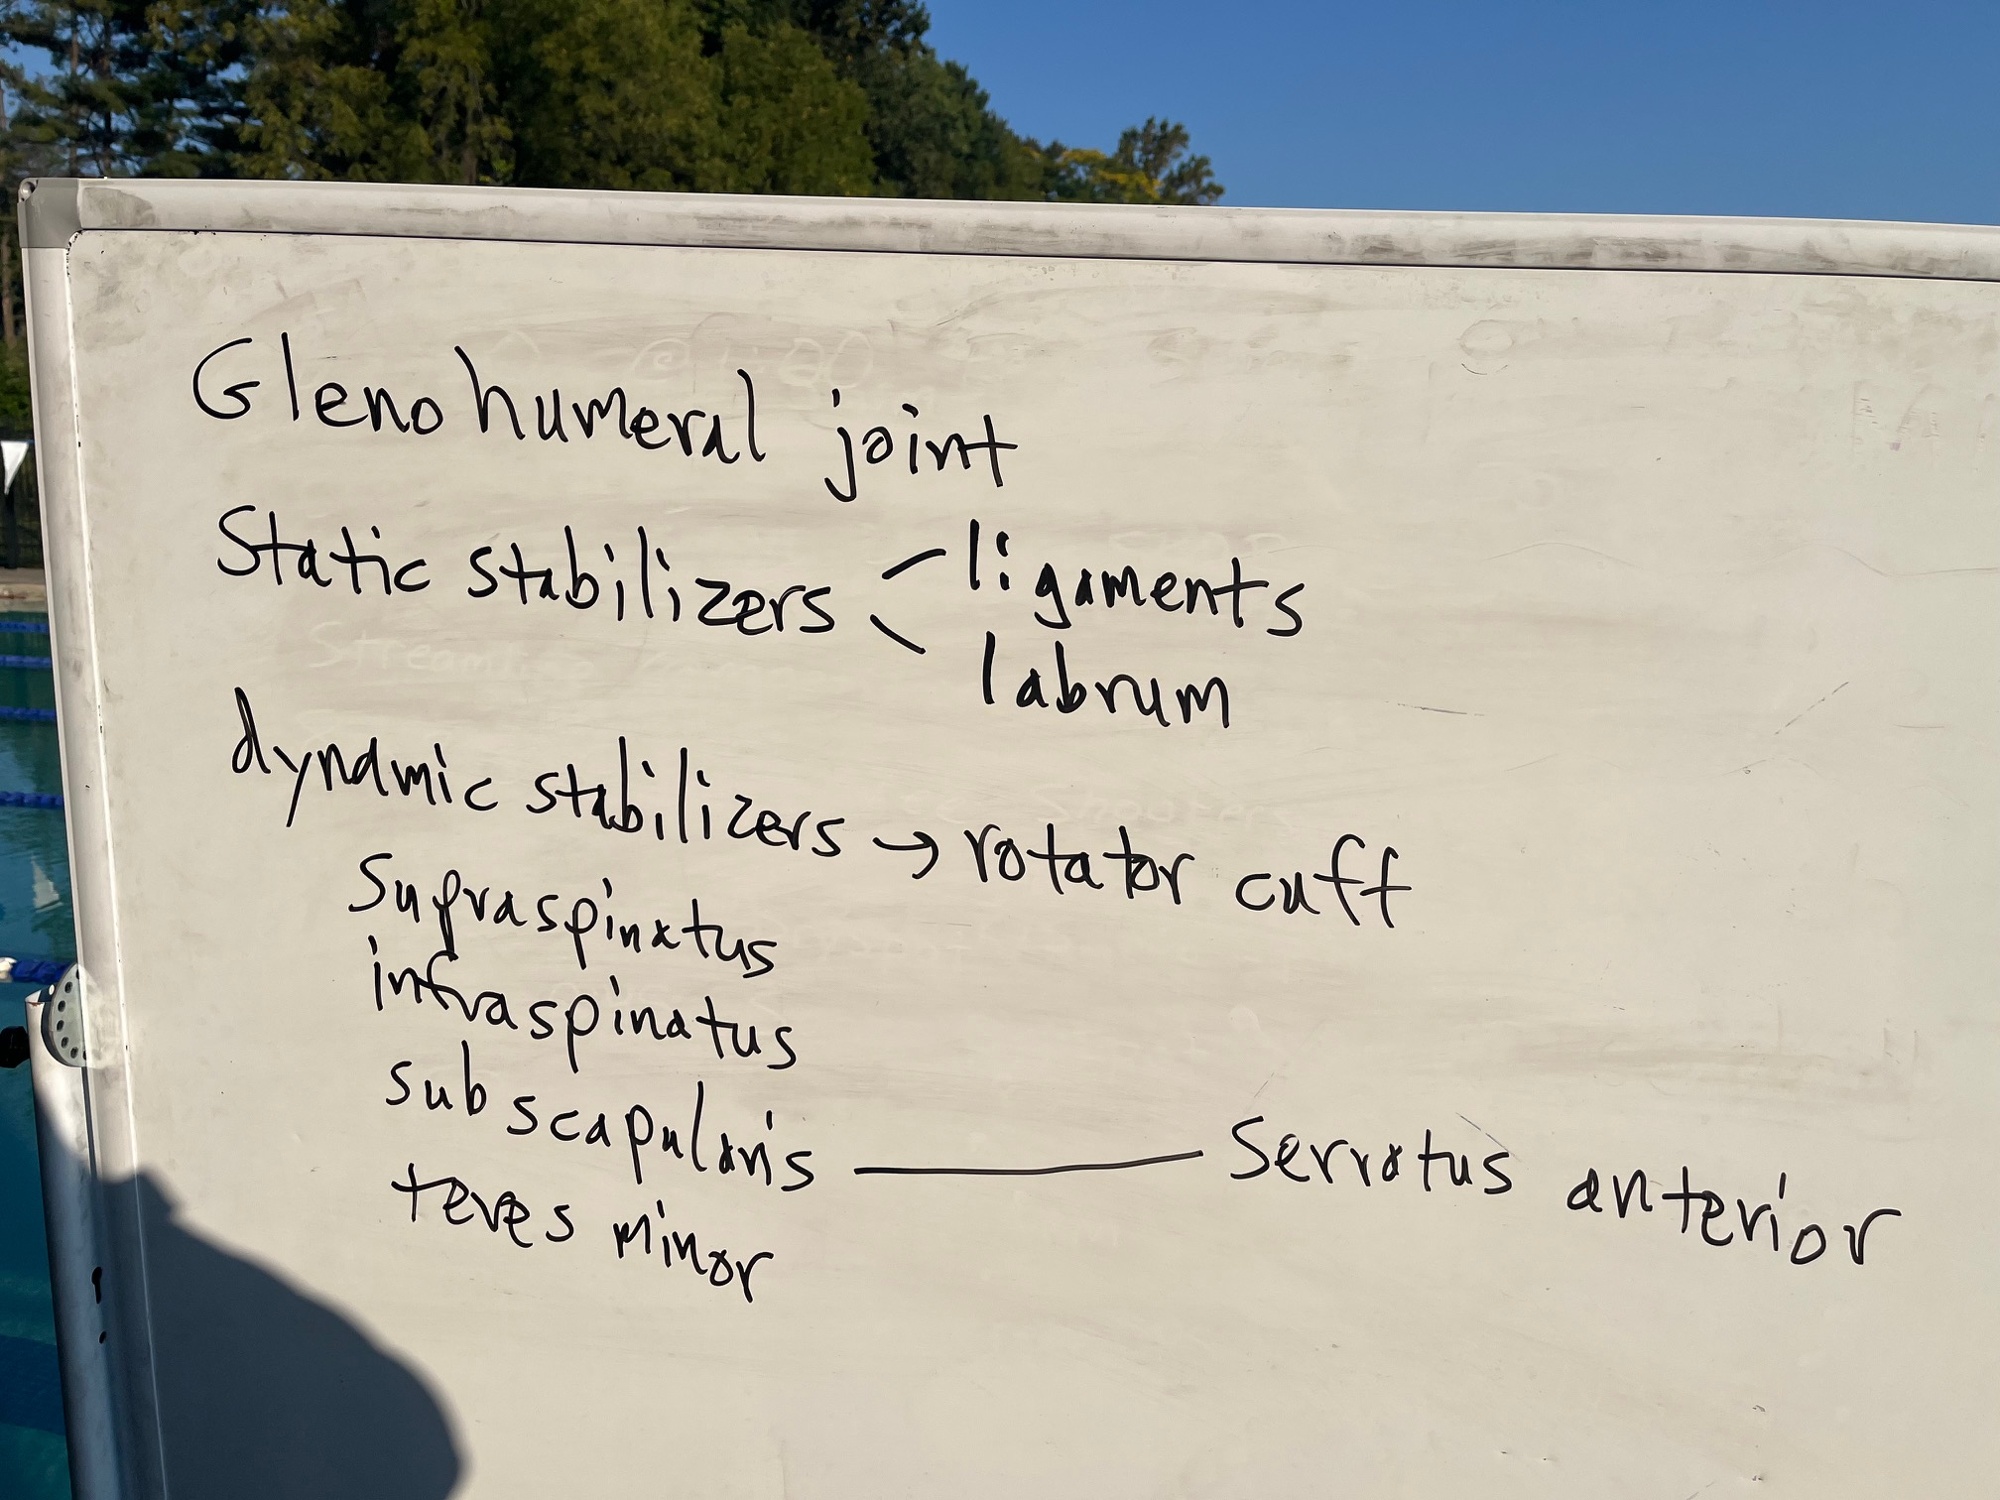 Glenohumeral joint
Static stabilizers < ligaments
labrum
dynamic stabilizers → rotator cuff
Supraspinatus
infraspinatus
subscapularis — Serratus anterior
teres minor